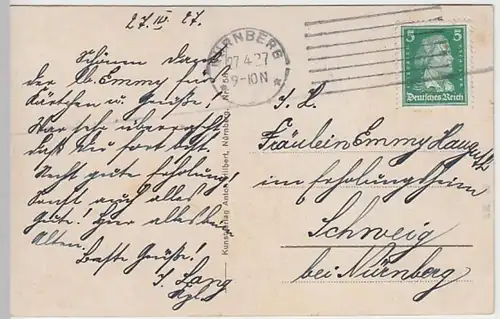 27. IV. 27.
Schönen Dank
der lb. Emmy für
Kärtchen u. Grüße!
War sehr überrascht,
daß Du fort bist.
Recht gute Erholung!
Sonst auch alles
Gute! Hier alles beim
Alten.
Beste Grüße!
J. Lang
NÜRNBERG
27.4.27
9-10N
5 5
Deutsches Reich
Kunstverlag Anton Hilbert, Nürnberg
Fräulein Emmy Haug
im Erholungsheim
Schweig
bei Nürnberg